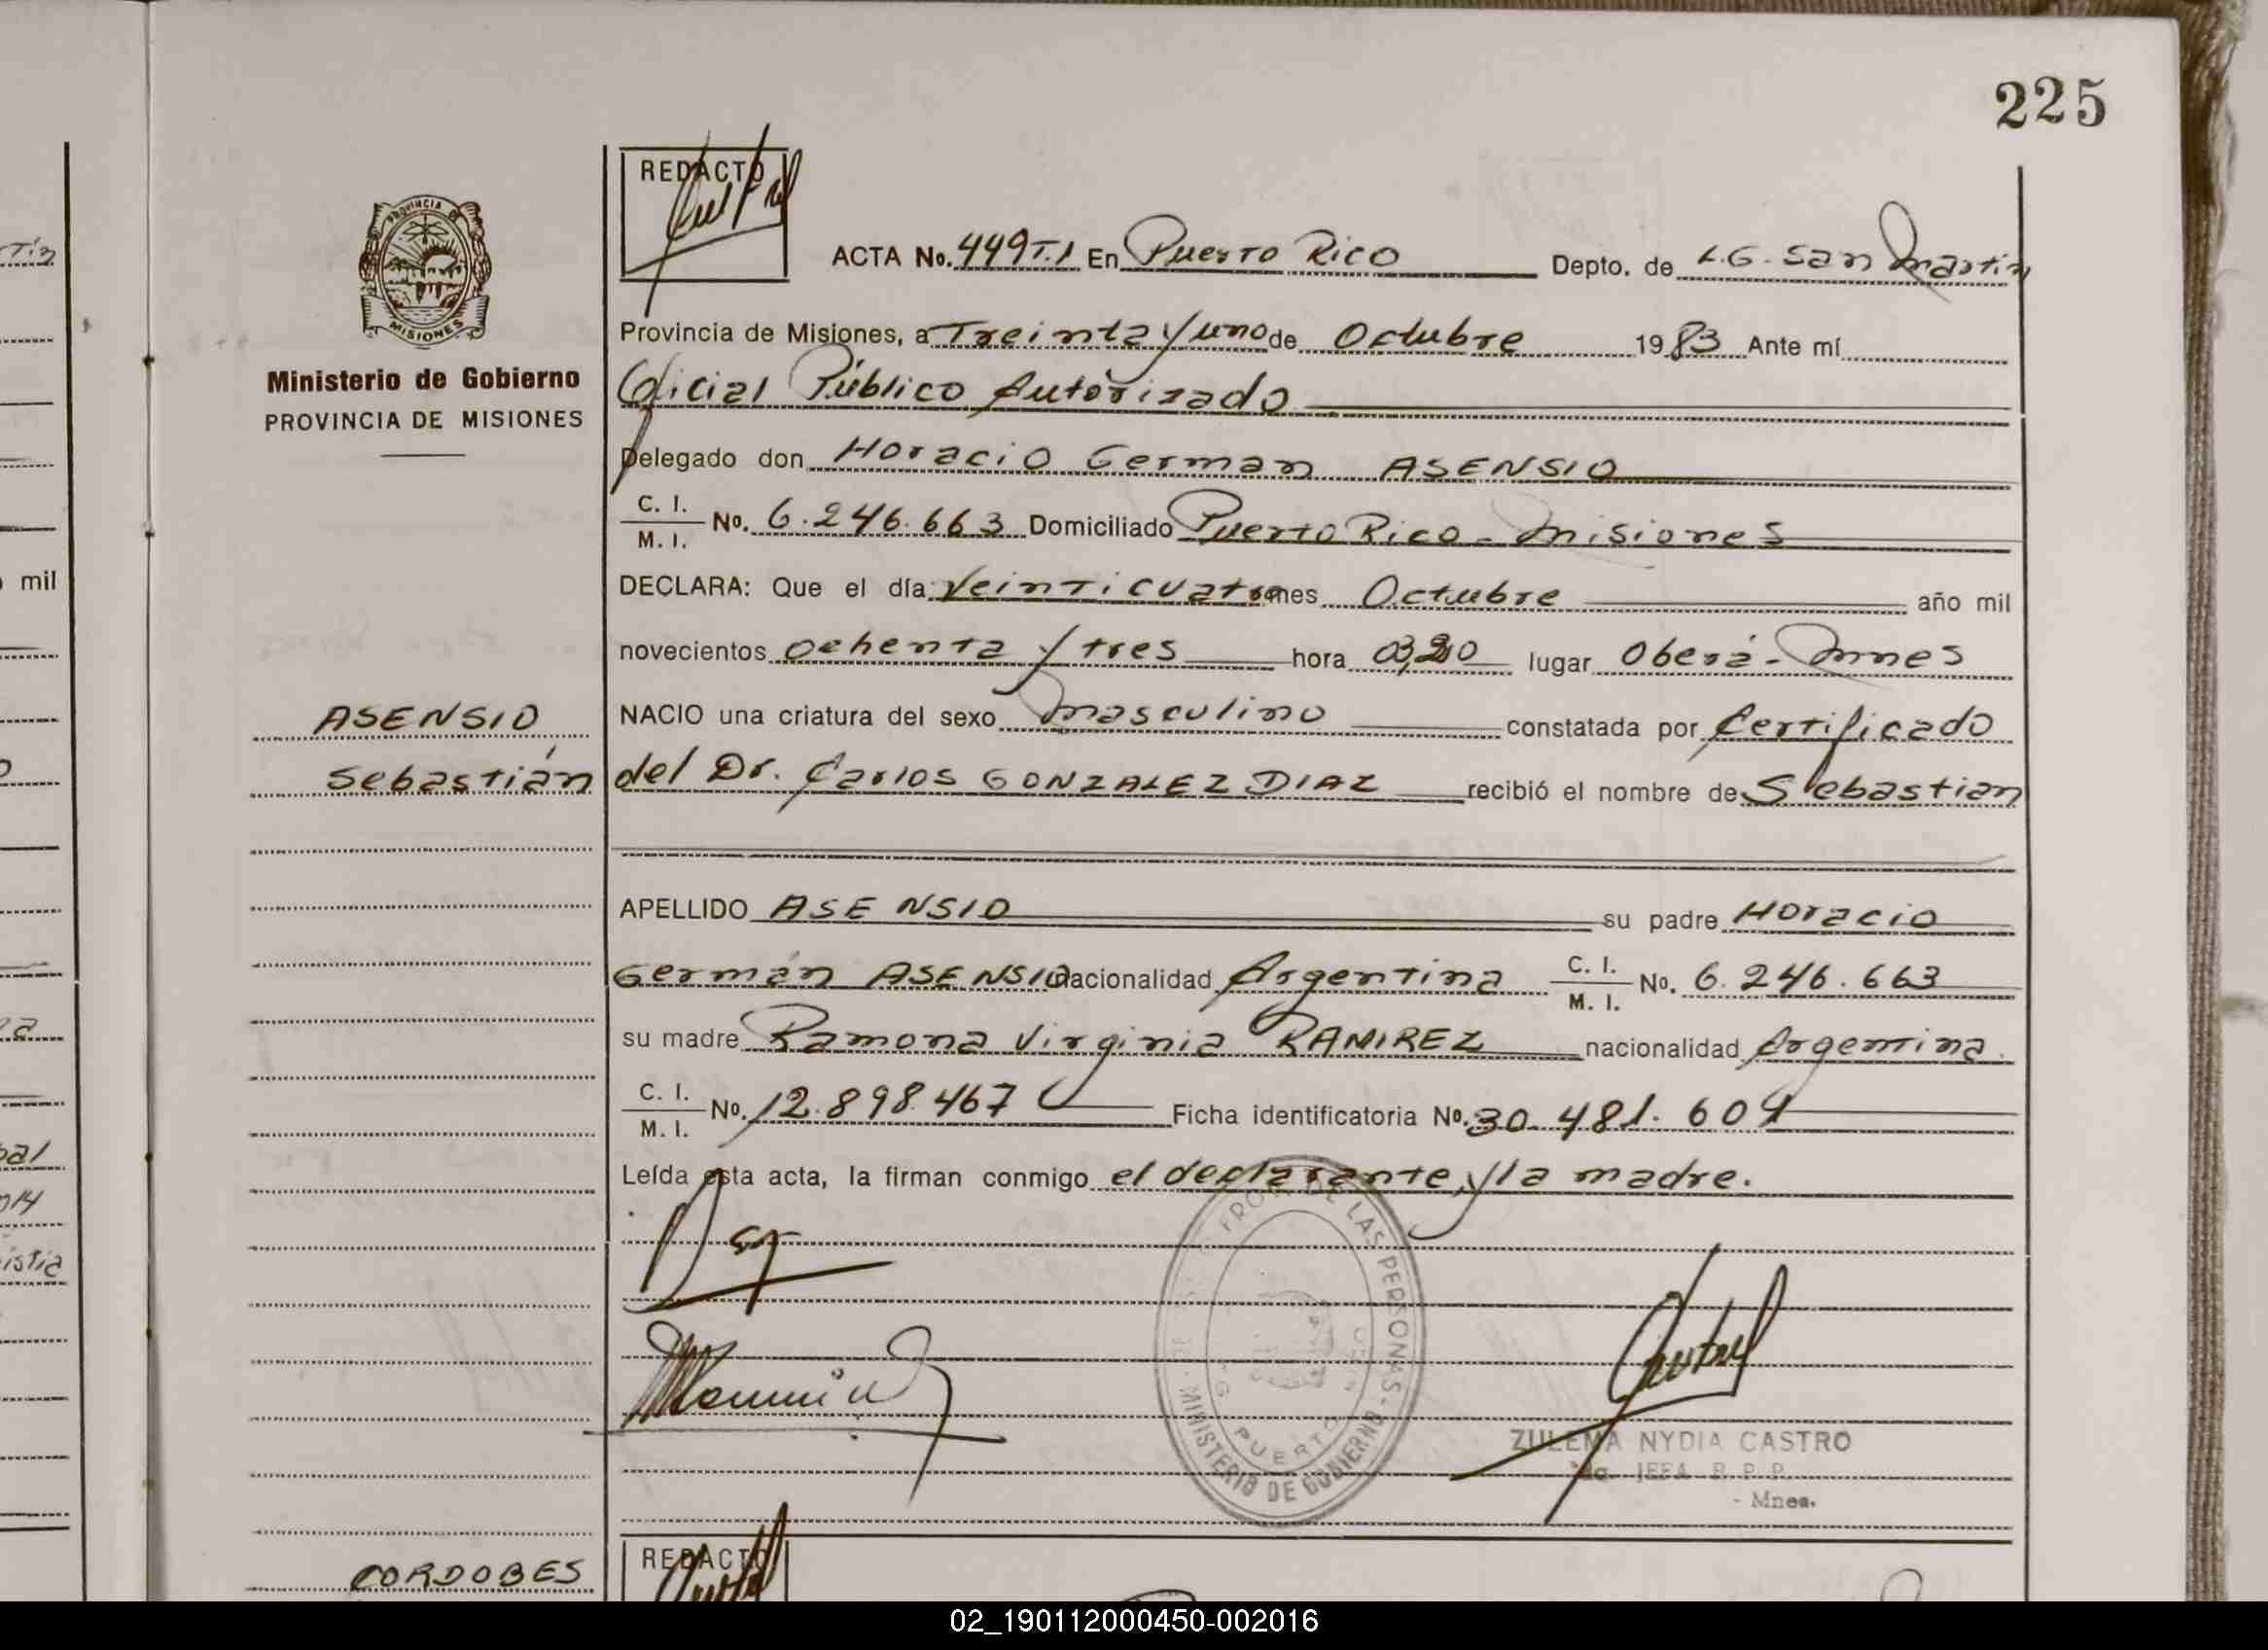 225
REDACTO
ACTA No. 449 T.I En Puerto Rico Depto. de L.G. San Martín
Provincia de Misiones, a Treinta y uno de Octubre 1983 Ante mí
Oficial Público Autorizado
Delegado don Horacio German ASENSIO
C. I.
M. I. No. 6.246.663 Domiciliado Puerto Rico - Misiones
DECLARA: Que el día Veinticuatro mes Octubre año mil
novecientos ochenta y tres hora lugar Oberá - Mnes
NACIO una criatura del sexo masculino constatada por Certificado
del Dr. Carlos GONZALEZ DIAZ recibió el nombre de Sebastian
APELLIDO ASENSIO su padre Horacio
Germán ASENSIO nacionalidad Argentina C. I. M. I. No. 6.246.663
su madre Ramona Virginia RAMIREZ nacionalidad Argentina
C. I.
M. I. No. 12.898.467 Ficha identificatoria No. 30.481.604
Leída esta acta, la firman conmigo el declarante y la madre.
PROVINCIA DE
MISIONES
Ministerio de Gobierno
PROVINCIA DE MISIONES
ASENSIO
Sebastián
CORDOBES
DE LAS PERSONAS - MINISTERIO DE GOBIERNO
PUERTO
ZULEMA NYDIA CASTRO
JEFA R. P. P.
- Mnes.
REDACTO
mil
02_190112000450-002016